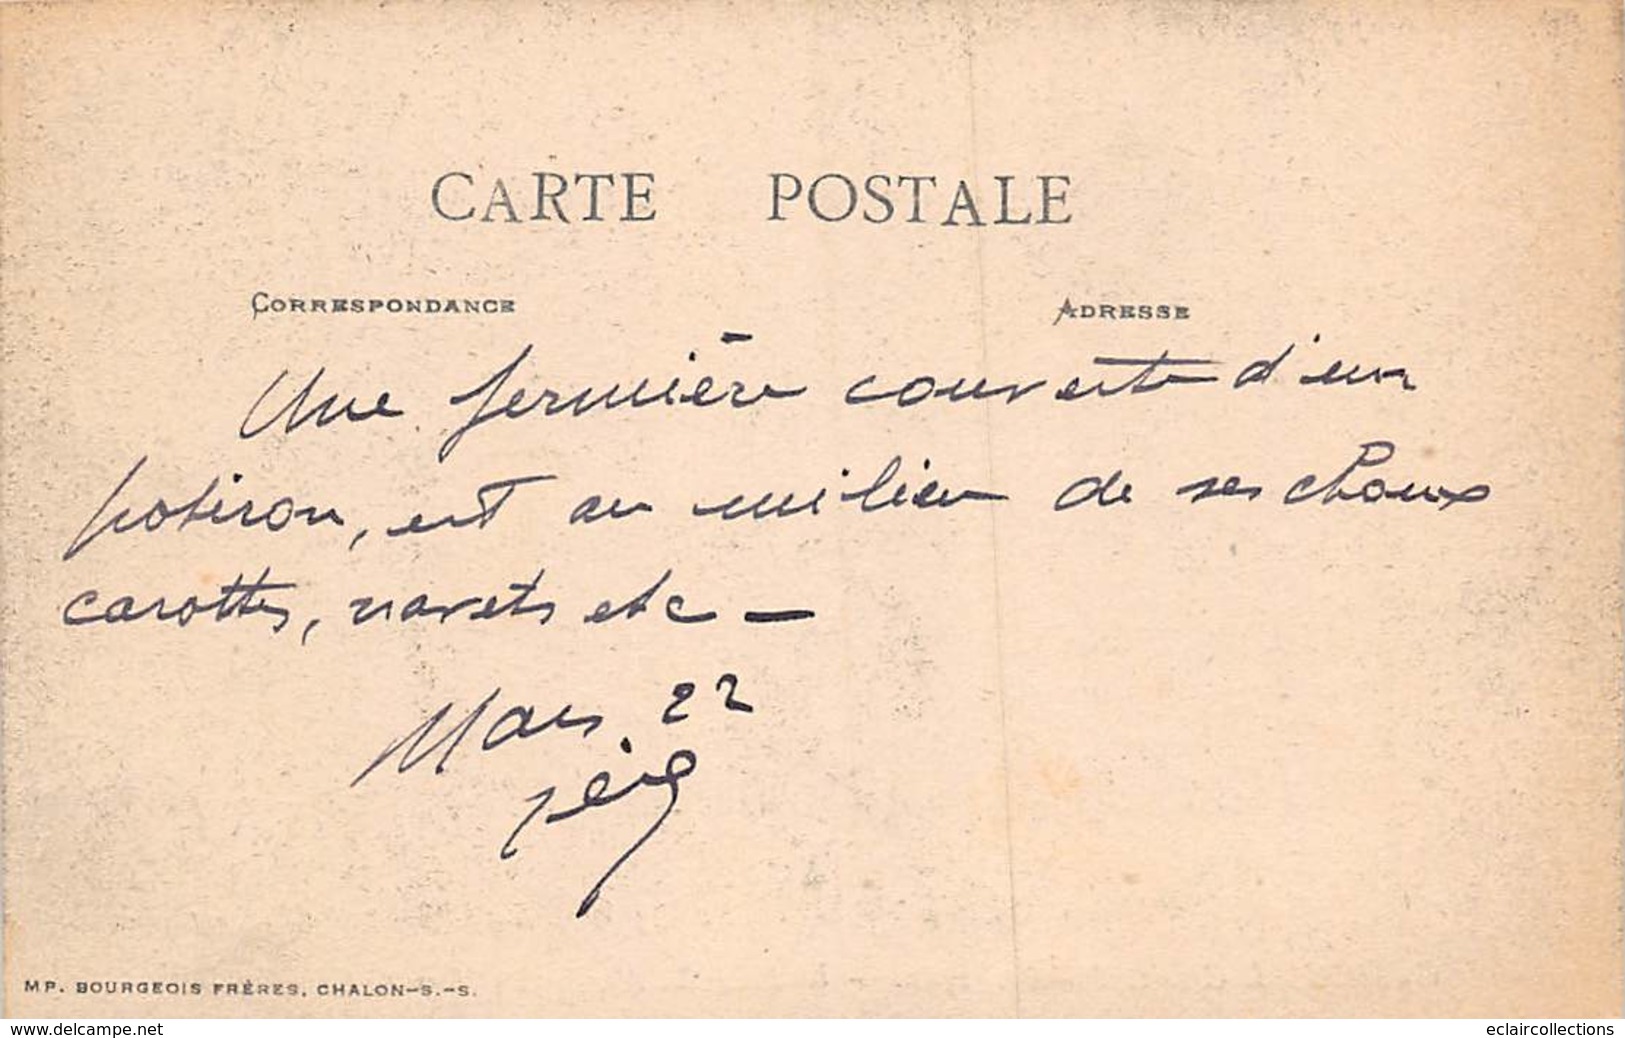 CARTE POSTALE
CORRESPONDANCE
ADRESSE
Une fermière couverte d'un
potiron, est au milieu de ses choux
carottes, navets etc —
Mars 22
MP. BOURGEOIS FRÈRES, CHALON-S.-S.
www.delcampe.net
eclaircollections